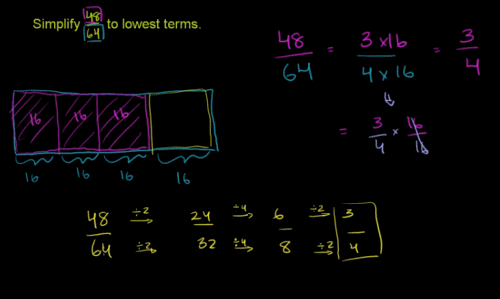 Simplify 48/64 to lowest terms.
48/64 = 3×16/4×16 = 3/4
= 3/4 × 16/16
16 16 16
16 16 16 16
48 ÷2→ 24 ÷4→ 6 ÷2→ 3
64 ÷2→ 32 ÷4→ 8 ÷2→ 4